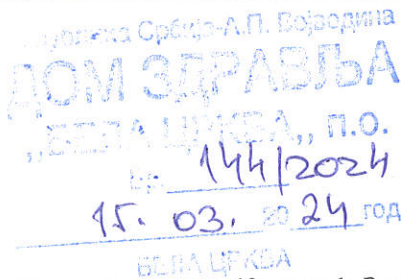 Република Србија-А.П. Војводина
ДОМ ЗДРАВЉА
„БЕЛА ЦРКВА„ п.о.
Бр. 144/2024
15. 03. 20 24 год
БЕЛА ЦРКВА